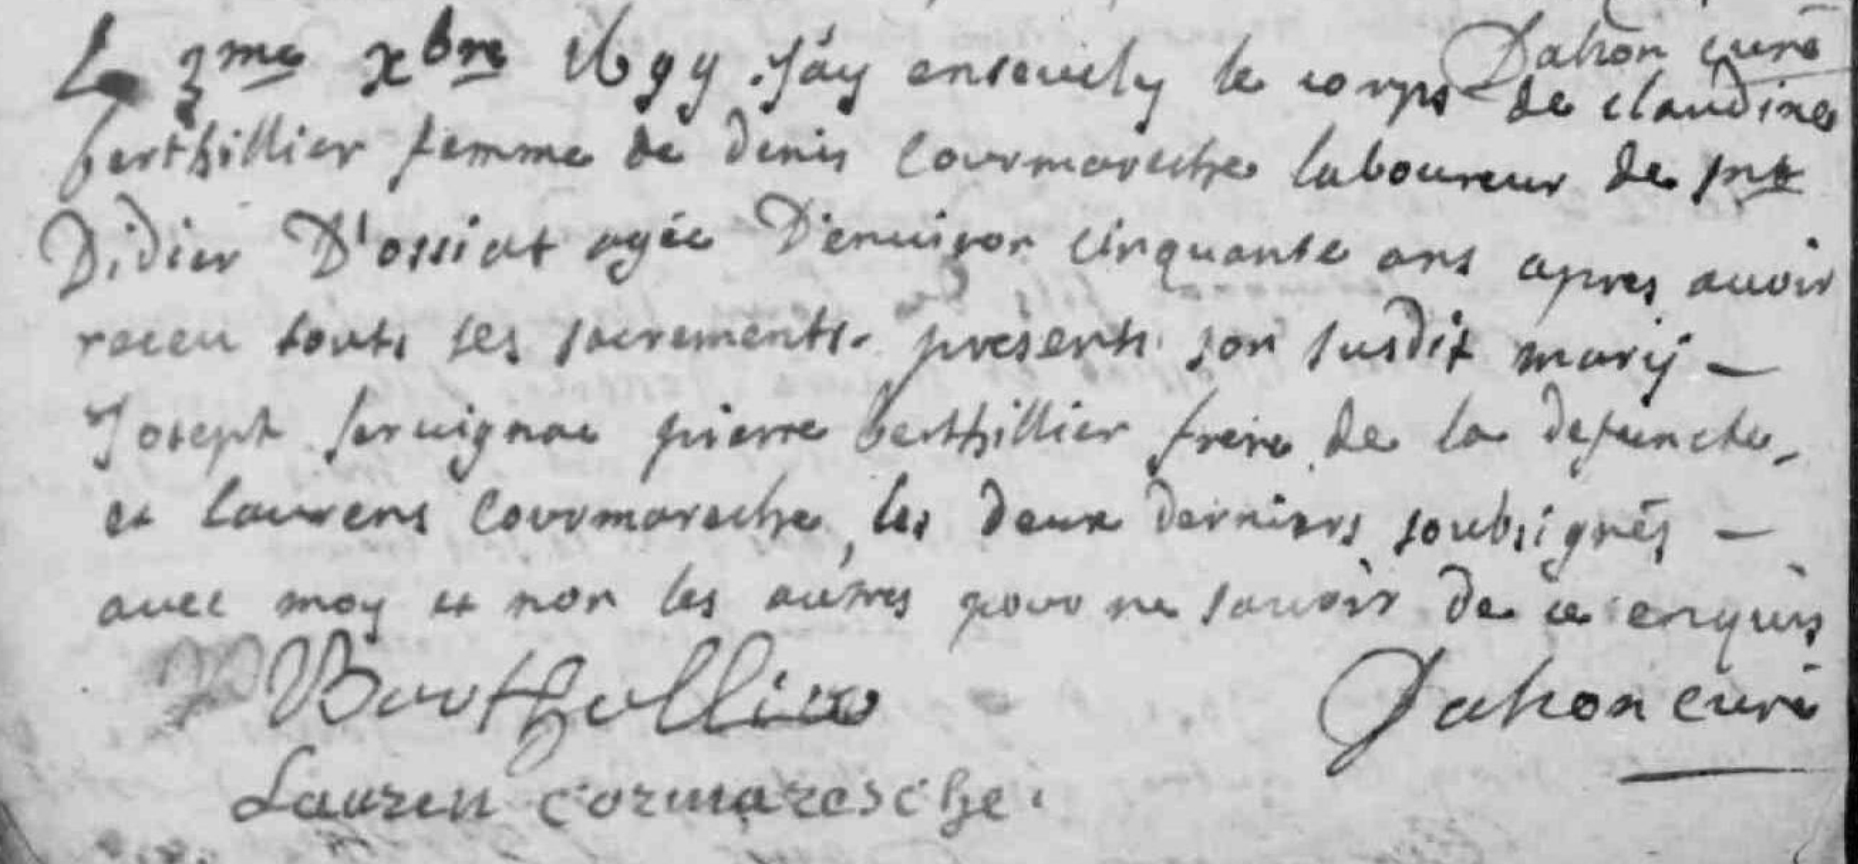 Dahon curé
Le 3me xbre 1699 J'ay ensevely le corps de claudine
berthillier femme de denis Courmareche laboureur de snt
Didier D'ossiat agée D'environ cinquante ans apres avoir
receu touts ses sacrements. presents son susdit marij —
Joseph servignac pierre berthillier frere de la defuncte,
et laurens Courmareche, les deux derniers soubsignés —
avec moy et non les autres pour ne savoir de ce enquis
P Berthellier
Dahon curé
Lauren cormaresche.